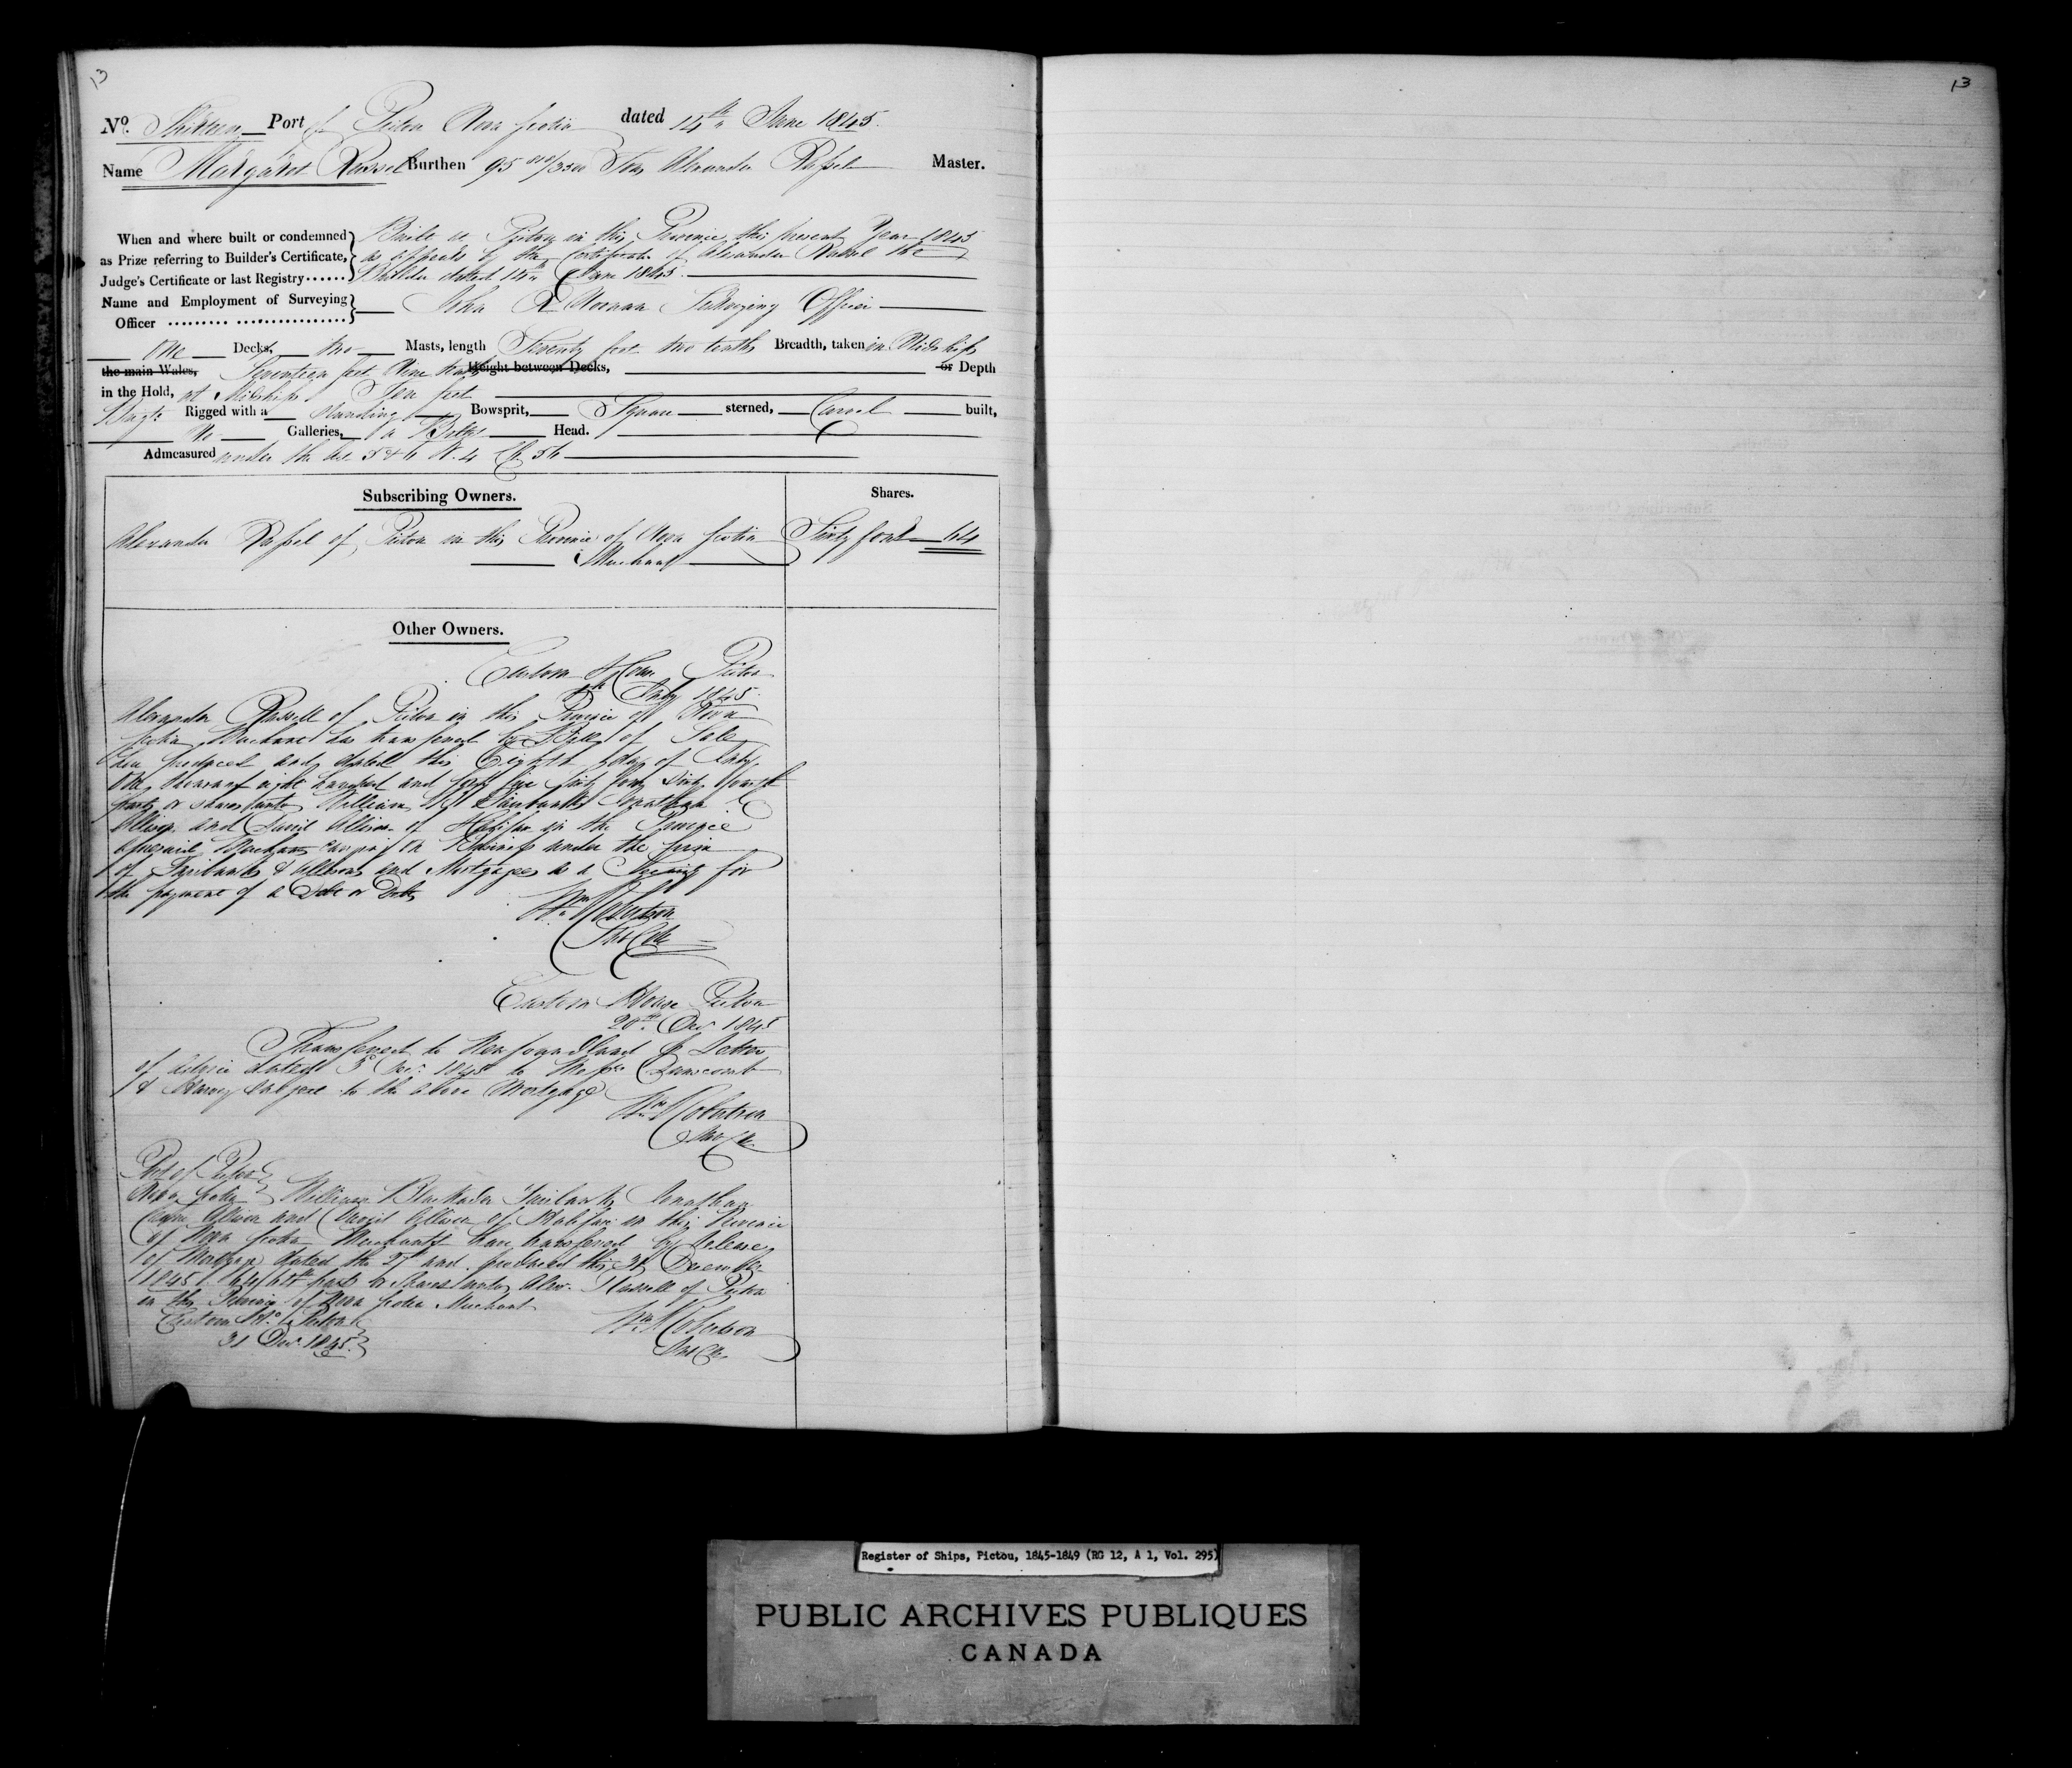 13
13
No. Thirteen Port of Pictou Nova Scotia dated 14th June 1845.
Name Margaret Russel Burthen 95 /3500 Tons Alexander Russel Master.
When and where built or condemned as Prize referring to Builder's Certificate, Judge's Certificate or last Registry......
Built at Pictou in this Province this present Year 1845
as appears by the Certificate of Alexander Russel the
Builder dated June 1845.
Name and Employment of Surveying Officer
John Surveying Officer
One Decks, two Masts, length Seventy feet two tenths Breadth, taken in Midships
the main Wales, Seventeen feet Nine tenths Height between Decks, or Depth
in the Hold, at Midships Ten feet
Brigt. Rigged with a Standing Bowsprit, Square sterned, Carvel built,
No Galleries, a Billet Head.
Admeasured under the Act 5 & 6 W. 4 Ch 56
Subscribing Owners. Shares.
Alexander Russel of Pictou in this Province of Nova Scotia Sixty four 64
Merchant
Other Owners.
Custom House Pictou
July 1845.
Alexander Russell of Pictou in this Province of Nova
Scotia Merchant has transferred by Bill of Sale
produced and dated this Eighth day of July
One thousand eight hundred and forty five Sixty four Sixty fourth
parts or shares unto William B Fairbanks Jonathan C
Allison and David Allison of Halifax in the Province
aforesaid Merchants carrying on Business under the firm
of Fairbanks & Allisons and Mortgagees as a Security for
the payment of a Debt or Debts
Wm Robertson
Custom House Pictou
20th Decr 1845
Transferred to Newfoundland Letter
of Advice dated 3d 1845 to Messrs
& Harvey subject to the above Mortgage
Wm Robertson
Port of Pictou
Nova Scotia William Blackader Fairbanks Jonathan
Allison and David Allison of Halifax in this Province
of Nova Scotia Merchants have transferred by Release
of Mortgage dated the and produced this 31 December
1845 parts or Shares unto Alexr. Russell of Pictou
in the Province of Nova Scotia Merchant
Custom Ho. Pictou
31 Decr. 1845.
Wm Robertson
Register of Ships, Pictou, 1845-1849 (RG 12, A 1, Vol. 295)
PUBLIC ARCHIVES PUBLIQUES
CANADA